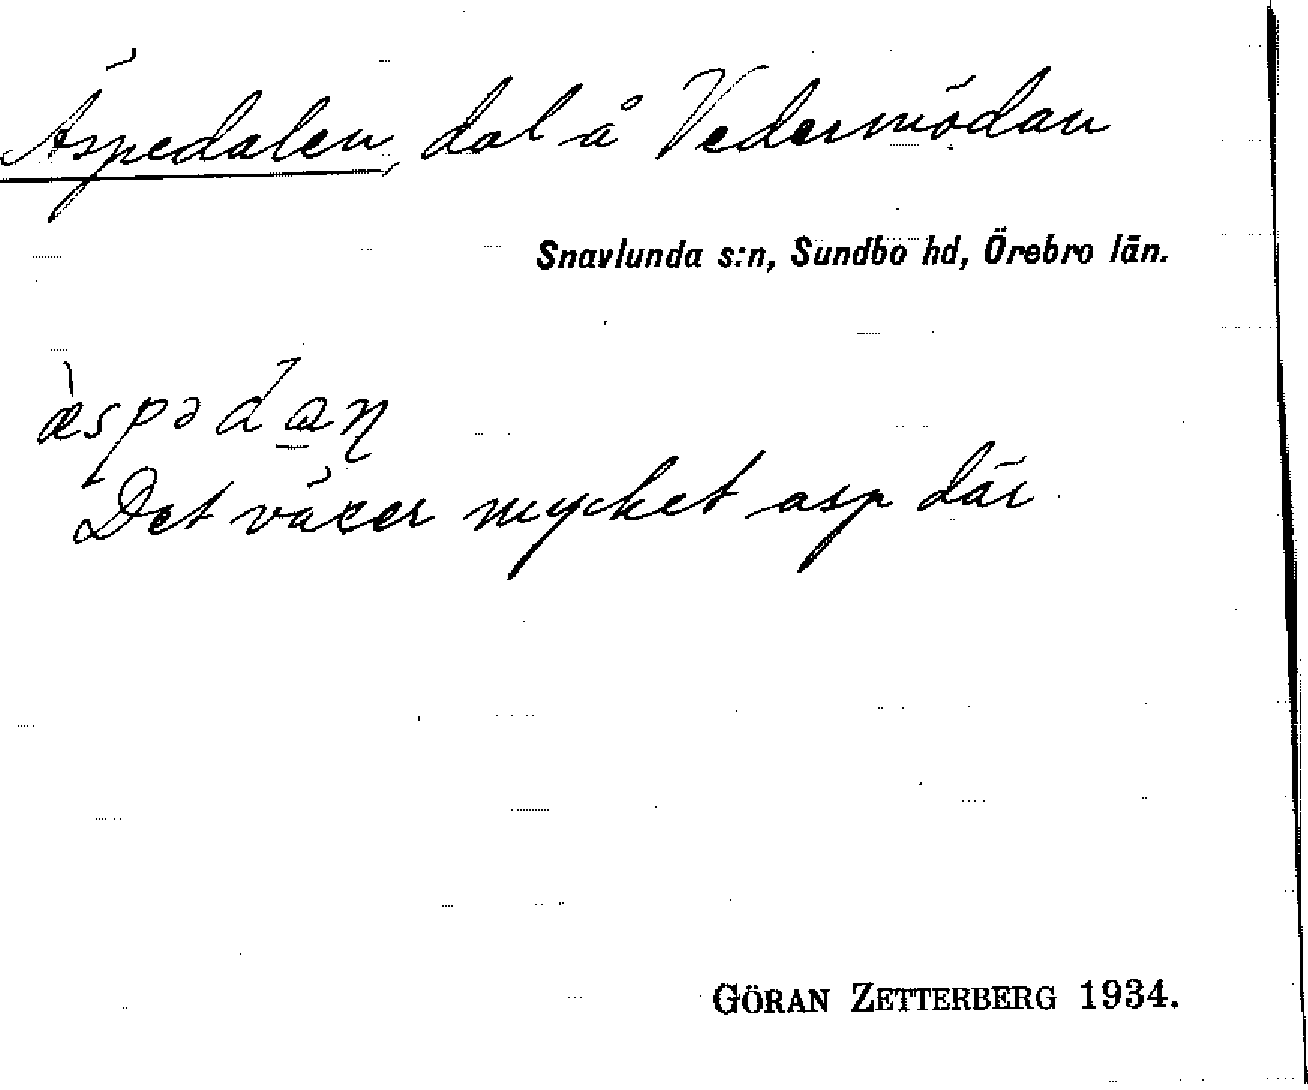 Äspedalen, dal å Vedermödan
Snavlunda s:n, Sundbo hd, Örebro län.
æ̀spədan̥
Det växer mycket asp där
GÖRAN ZETTERBERG 1934.